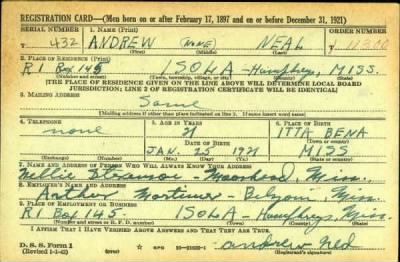 REGISTRATION CARD—(Men born on or after February 17, 1897 and on or before December 31, 1921)
SERIAL NUMBER 1. NAME (Print) ORDER NUMBER
T 432 ANDREW (NONE) NEAL
(First) (Middle) (Last)
2. PLACE OF RESIDENCE (Print)
R1 Box 145 ISOLA - Humphreys, MISS.
(Number and street) (Town, township, village, or city) (County) (State)
[THE PLACE OF RESIDENCE GIVEN ON THE LINE ABOVE WILL DETERMINE LOCAL BOARD
JURISDICTION; LINE 2 OF REGISTRATION CERTIFICATE WILL BE IDENTICAL]
3. MAILING ADDRESS
Same
[Mailing address if other than place indicated on line 2. If same insert word same]
4. TELEPHONE 5. AGE IN YEARS 6. PLACE OF BIRTH
none 21 ITTA BENA
DATE OF BIRTH (Town or county)
JAN. 25 1921 MISS
(Exchange) (Number) (Mo.) (Day) (Yr.) (State or country)
7. NAME AND ADDRESS OF PERSON WHO WILL ALWAYS KNOW YOUR ADDRESS
Nellie Moorhead, Miss.
8. EMPLOYER'S NAME AND ADDRESS
Arthur Mortimer - Belzoni, Miss.
9. PLACE OF EMPLOYMENT OR BUSINESS
R1 Box 145 ISOLA - Humphreys, Miss.
(Number and street or R. F. D. number) (Town) (County) (State)
I AFFIRM THAT I HAVE VERIFIED ABOVE ANSWERS AND THAT THEY ARE TRUE.
D. S. S. Form 1
(Revised 1-1-42) (over) Andrew